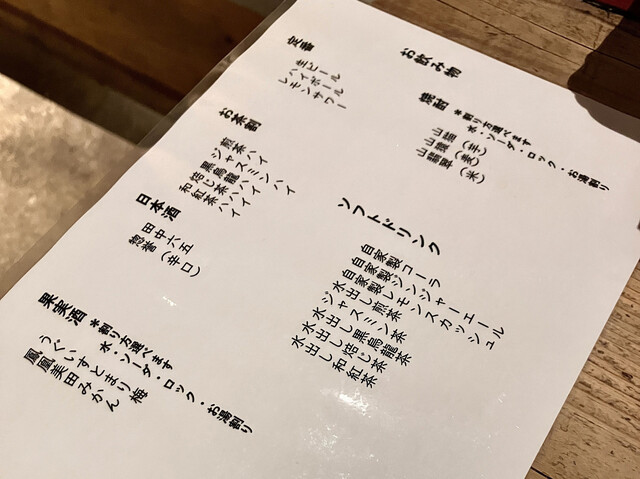 お飲み物
定番
生ビール
ハイボール
レモンサワー
焼酎 *割り方選べます
水・ソーダ・ロック・お湯割り
山猫(芋)
山猿(麦)
山翡翠(米)
お茶割
煎茶ハイ
ジャスミンハイ
黒烏龍ハイ
焙じ茶ハイ
和紅茶ハイ
ソフトドリンク
自家製コーラ
自家製ジンジャーエール
自家製レモンスカッシュ
水出し煎茶
ジャスミン茶
水出し黒烏龍茶
水出し焙じ茶
水出し和紅茶
日本酒
田中六五
惣誉(辛口)
果実酒 *割り方選べます
水・ソーダ・ロック・お湯割り
うぐいすとまり 梅
鳳凰美田みかん